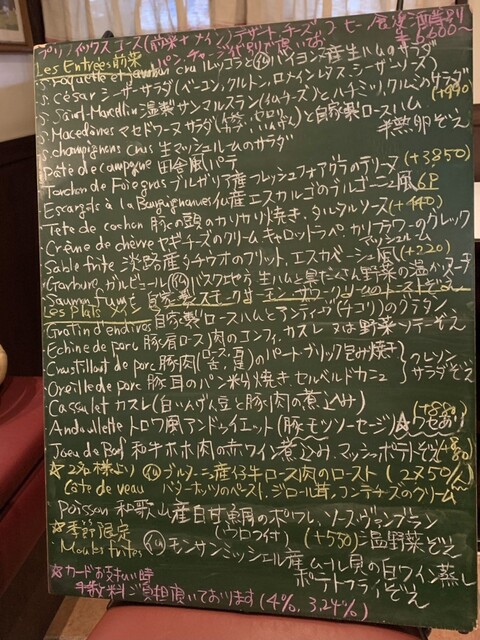 プリフィックスコース(前菜+メイン)デザート、チーズ、コーヒー 食後酒別
パン・チャージ代別で頂いております ¥5,600〜
Les Entrées 前菜
S. Roquette et Jambon cru ルッコラと仏バイヨンヌ産生ハムのサラダ
S. César シーザーサラダ(ベーコン、クルトン、ロメインレタス、シーザーソース)
S. Saint-Marcellin 温製サンマルスラン(チーズ)とハチミツ、クルミのサラダ
S. Macédoines マセドワーヌサラダ と自家製ロースハム 半熟卵ぞえ
S. champignons crus 生マッシュルームのサラダ
Pâte de campagne 田舎風パテ
Torchon de Foie gras ブルガリア産フレッシュフォアグラのテリーヌ(+3850)
Escargots à la Bourguignonne 仏産エスカルゴのブルゴーニュ風 6P
Tête de cochon 豚の頭のカリカリ焼き、タルタルソース(+440)
Crème de chèvre ヤギチーズのクリーム キャロットラペ、カリフラワーのグレック
Sable frite 淡路産タチウオのフリット、エスカベーシュ風(+220)
Garbure ガルビュール 仏バスク地方 生ハムと具だくさん野菜の温かスープ
Saumon fumé 自家製スモークサーモン、サワークリームのトーストぞえ
Les Plats メイン
Gratin d'endives 自家製ロースハムとアンディーヴ(チコリ)のグラタン
Echine de porc 豚肩ロース肉のコンフィ、カスレ 又は 野菜ソテーぞえ
Croustillant de porc 豚肉(ロース、舌、耳)のパートブリック包み焼き クレソンサラダぞえ
Oreille de porc 豚耳のパン粉焼き、セルベルドカニュ
Cassoulet カスレ(白いんげん豆と豚肉の煮込み)
Andouillette トロワ風アンドゥイエット(豚モツソーセージ)☆クセあり(+880)
Joue de Bœf 和牛ホホ肉の赤ワイン煮込み、マッシュポテトぞえ(+880)
☆2名様より 仏ブルターニュ産仔牛ロース肉のロースト(2750/人)
Côte de veau バターホッツのペースト、ジロール茸、コンテチーズのクリーム
Poisson 和歌山産白甘鯛のポワレ、ソース・ヴァンブラン
(ウロコ付)(+550)温野菜ぞえ
☆季節限定
Moules frites 仏モンサンミッシェル産ムール貝の白ワイン蒸し
ポテトフライぞえ
☆カードお支払い時
手数料ご負担頂いております(4%、3.24%)